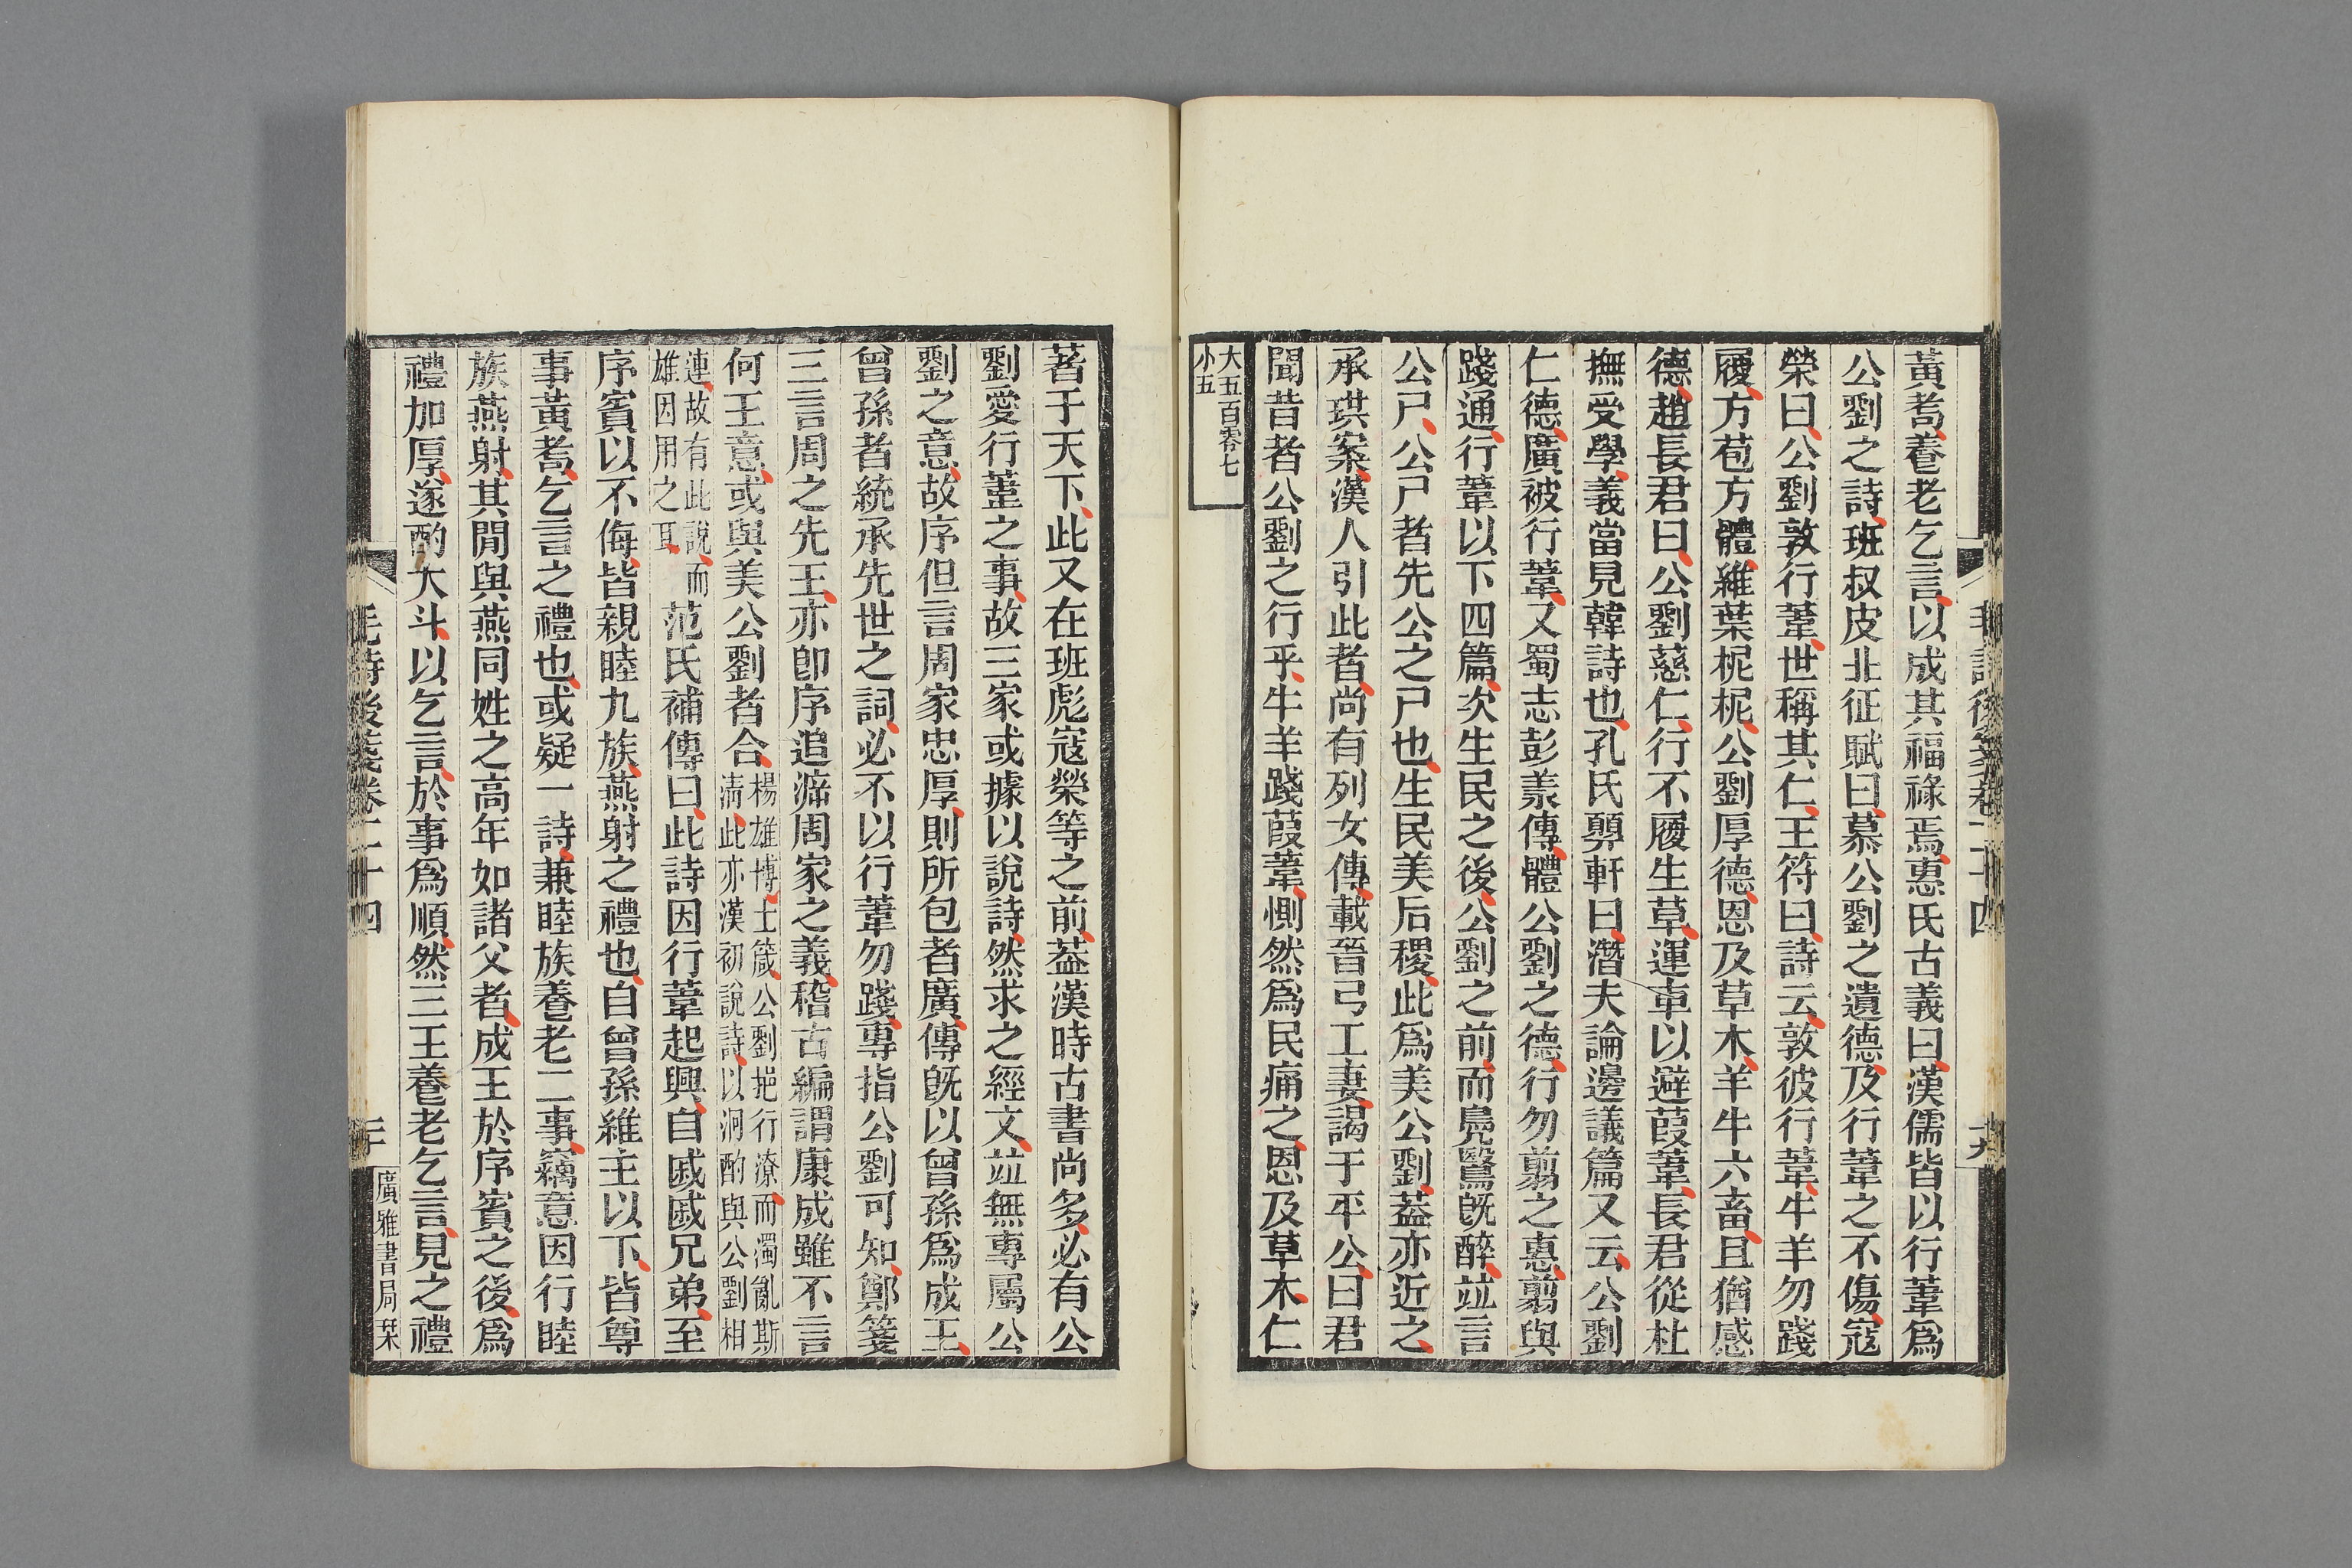 黃耇養老乞言以成其福祿焉惠氏古義曰漢儒皆以行葦爲
公劉之詩班叔皮北征賦曰慕公劉之遺德及行葦之不傷寇
榮曰公劉敦行葦世稱其仁王符曰詩云敦彼行葦牛羊勿踐
履方苞方體維葉柅柅公劉厚德恩及草木羊牛六畜且猶感
德趙長君曰公劉慈仁行不履生草運車以避葭葦長君從杜
撫受學義當見韓詩也孔氏顨軒曰潛夫論邊議篇又云公劉
仁德廣被行葦又蜀志彭羕傳體公劉之德行勿翦之惠翦與
踐通行葦以下四篇次生民之後公劉之前而鳧鷖旣醉竝言
公尸公尸者先公之尸也生民美后稷此爲美公劉葢亦近之
承珙案漢人引此者尚有列女傳載晉弓工妻謁于平公曰君
聞昔者公劉之行乎牛羊踐葭葦惻然爲民痛之恩及草木仁
大五百零七
小五
毛詩後箋卷二十四
著于天下此又在班彪寇榮等之前葢漢時古書尚多必有公
劉愛行葦之事故三家或據以說詩然求之經文竝無專屬公
劉之意故序但言周家忠厚則所包者廣傳旣以曾孫爲成王
曾孫者統承先世之詞必不以行葦勿踐專指公劉可知鄭箋
三言周之先王亦卽序追遡周家之義稽古編謂康成雖不言
何王意或與美公劉者合楊雄博士箴公劉挹行潦而濁亂斯
淸此亦漢初說詩以泂酌與公劉相
連故有此說而
雄因用之耳范氏補傳曰此詩因行葦起興自戚戚兄弟至
序賓以不侮皆親睦九族燕射之禮也自曾孫維主以下皆尊
事黃耇乞言之禮也或疑一詩兼睦族養老二事竊意因行睦
族燕射其閒與燕同姓之高年如諸父者成王於序賓之後爲
禮加厚遂酌大斗以乞言於事爲順然三王養老乞言見之禮
毛詩後箋卷二十四
廣雅書局栞